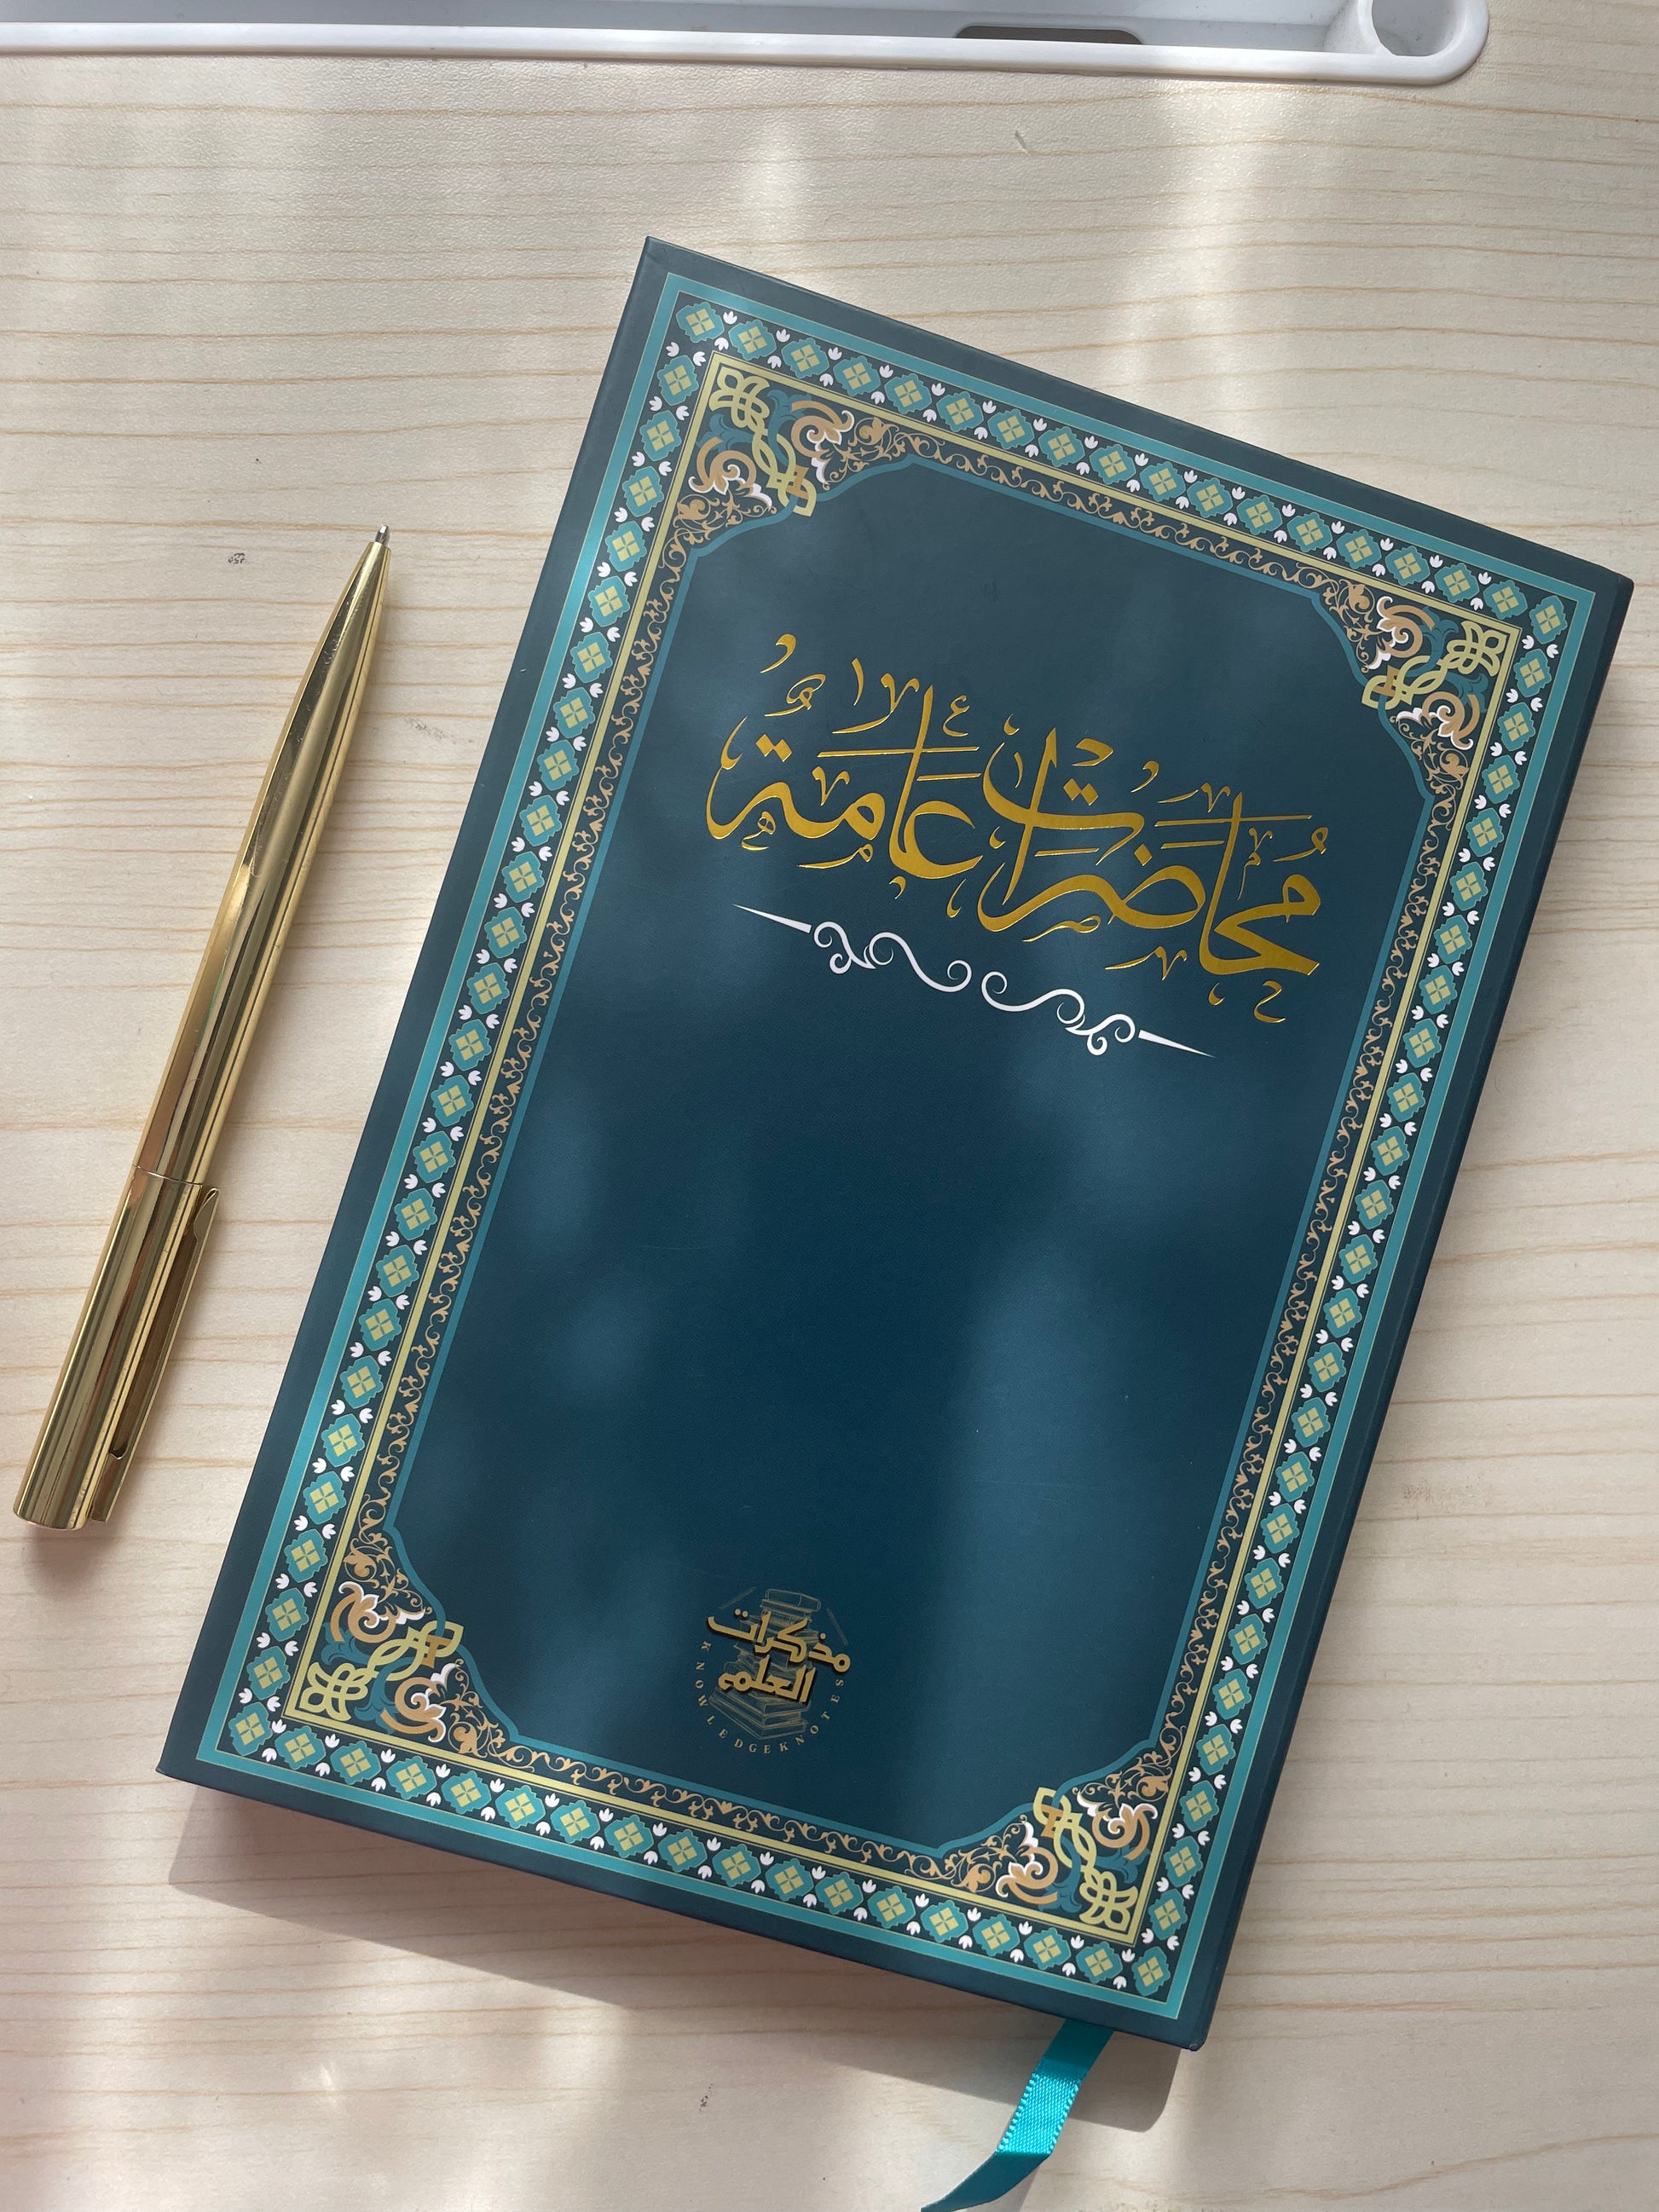 مُحَاضَرَاتٌ عَامَّةٌ
مذكرات
العلم
KNOWLEDGEKNOTES